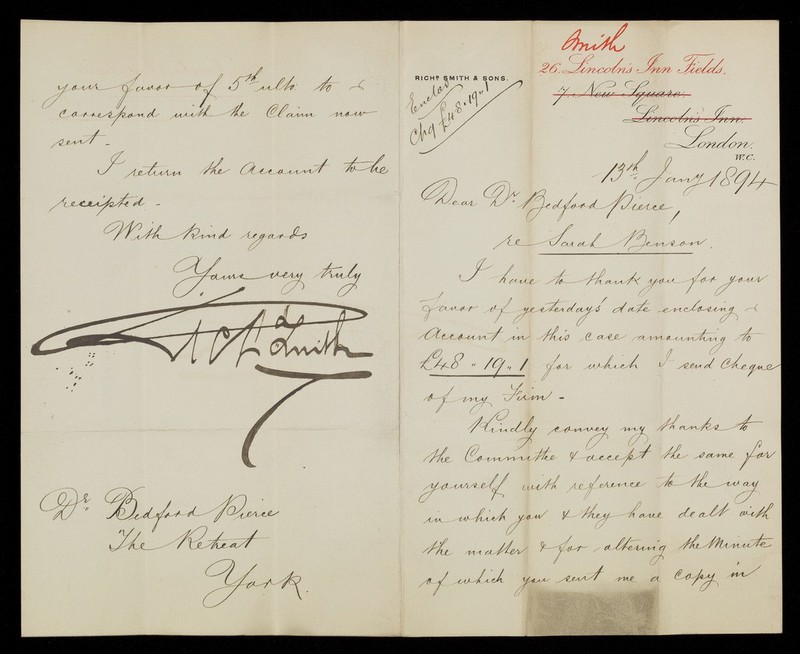 Smith
26. Lincoln's Inn Fields.
7. New Square.
Lincoln's Inn.
London.
W.C.
RICHD SMITH & SONS.
Enclos
Chq £48.19.1
13th Jany 1894
Dear Dr. Bedford Pierce,
re Sarah Benson.
I have to thank you for your
favor of yesterday's date enclosing
Account in this case amounting to
£48 " 19 " 1 for which I send cheque
of my Firm -
Kindly convey my thanks to
the Committee & accept the same for
yourself with reference to the way
in which you & they have dealt with
the matter & for altering the Minute
of which you sent me a copy in
your favor of 5th ulto to
correspond with the Claim now
sent -
I return the Account to be
receipted -
With kind regards
Yours very truly
Smith
Dr. Bedford Pierce
The Retreat
York.